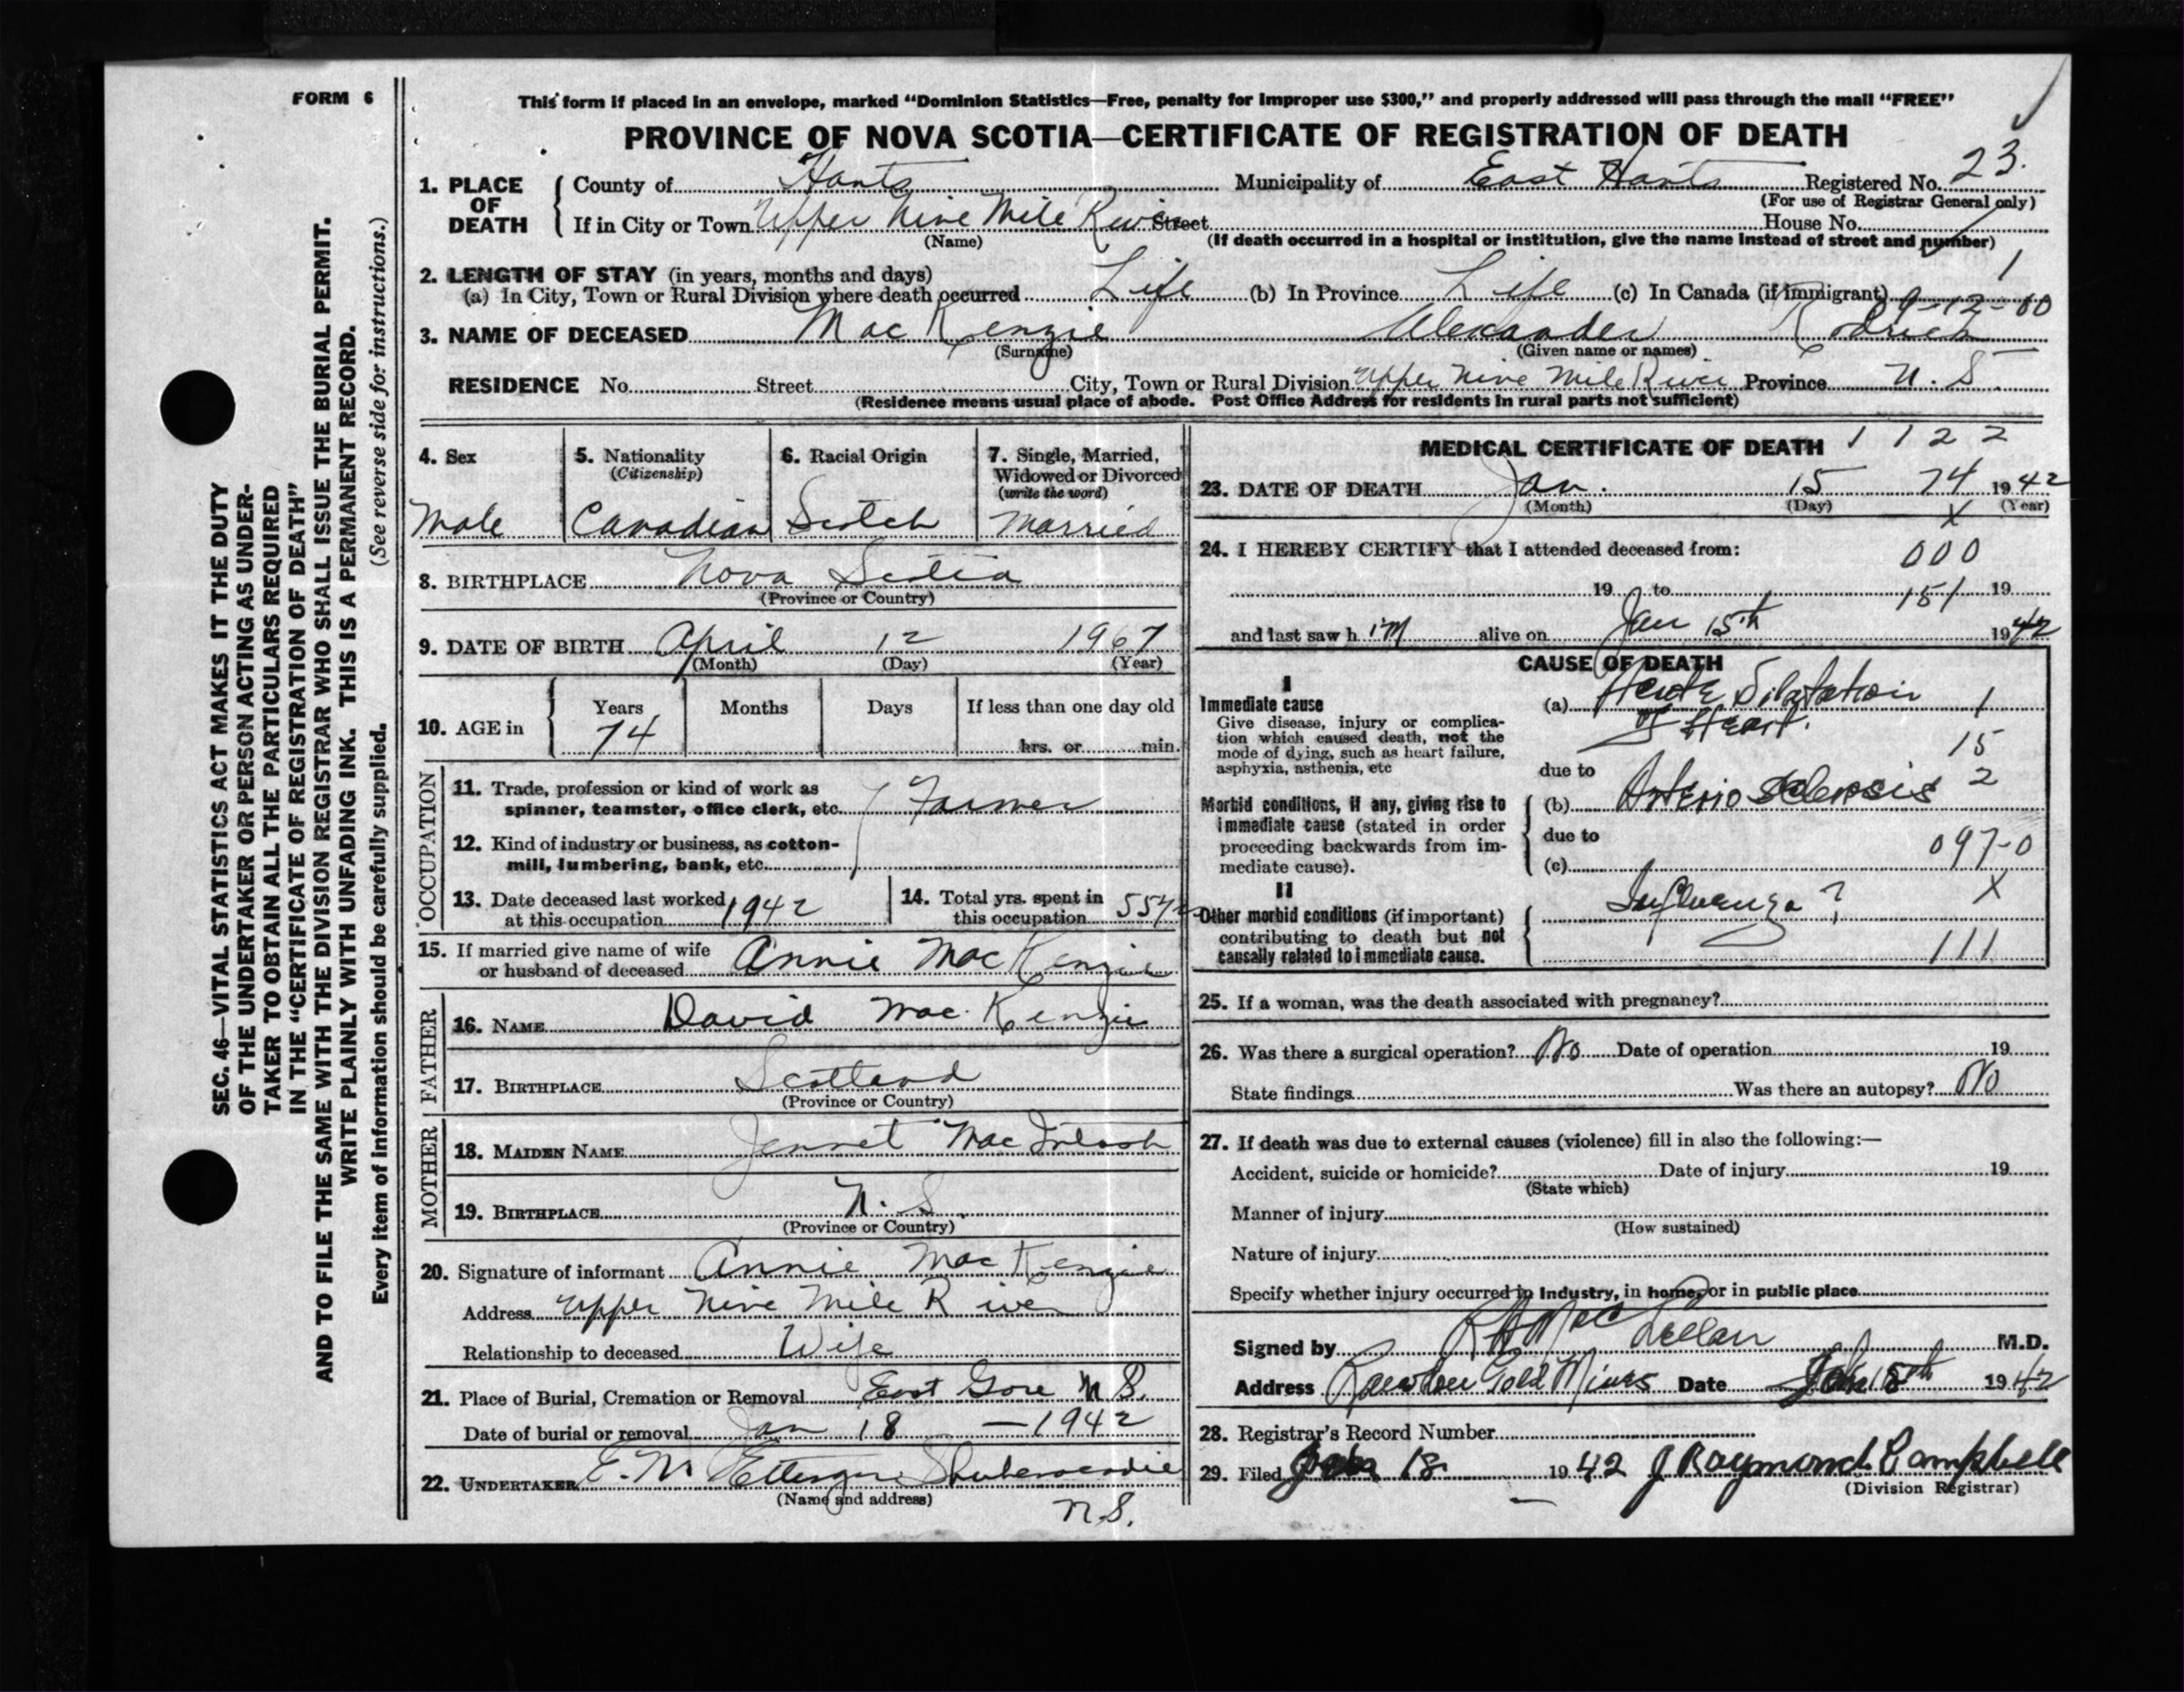 FORM 6
This form if placed in an envelope, marked “Dominion Statistics—Free, penalty for improper use $300,” and properly addressed will pass through the mail “FREE”
PROVINCE OF NOVA SCOTIA—CERTIFICATE OF REGISTRATION OF DEATH
1. PLACE OF DEATH County of Hants Municipality of East Hants Registered No. 23.
(For use of Registrar General only)
If in City or Town Upper Nine Mile River Street House No.
(Name) (If death occurred in a hospital or institution, give the name instead of street and number)
2. LENGTH OF STAY (in years, months and days) 1
(a) In City, Town or Rural Division where death occurred Life (b) In Province Life (c) In Canada (if immigrant) 09-12-00
3. NAME OF DECEASED Mac Kenzie Alexander Rodrick
(Surname) (Given name or names)
RESIDENCE No. Street City, Town or Rural Division Upper Nine Mile River Province N. S.
(Residence means usual place of abode. Post Office Address for residents in rural parts not sufficient)
4. Sex 5. Nationality (Citizenship) 6. Racial Origin 7. Single, Married, Widowed or Divorced (write the word)
Male Canadian Scotch Married
8. BIRTHPLACE Nova Scotia
(Province or Country)
9. DATE OF BIRTH April 12 1967
(Month) (Day) (Year)
10. AGE in Years Months Days If less than one day old
74 hrs. or min.
OCCUPATION
11. Trade, profession or kind of work as
spinner, teamster, office clerk, etc. Farmer
12. Kind of industry or business, as cotton-
mill, lumbering, bank, etc.
13. Date deceased last worked at this occupation 1942 14. Total yrs. spent in this occupation 55
15. If married give name of wife
or husband of deceased Annie Mac Kenzie
FATHER
16. NAME David Mac Kenzie
17. BIRTHPLACE Scotland
(Province or Country)
MOTHER
18. MAIDEN NAME Jennet Mac Intosh
19. BIRTHPLACE N. S.
(Province or Country)
20. Signature of informant Annie Mac Kenzie
Address Upper Nine Mile River
Relationship to deceased Wife
21. Place of Burial, Cremation or Removal East Gore N S.
Date of burial or removal Jan 18 — 1942
22. UNDERTAKER E. M Ettinger Shubenacadie
(Name and address) N.S.
MEDICAL CERTIFICATE OF DEATH 1 1 2 2
23. DATE OF DEATH Jan. 15 74 1942
(Month) (Day) X (Year)
24. I HEREBY CERTIFY that I attended deceased from: 000
19 to 151 19
and last saw h im alive on Jan 15th 1942
CAUSE OF DEATH
I
Immediate cause
Give disease, injury or complica-
tion which caused death, not the
mode of dying, such as heart failure,
asphyxia, asthenia, etc
(a) Acute Dilatation 1
of Heart.
15
due to
2
Morbid conditions, if any, giving rise to
immediate cause (stated in order
proceeding backwards from im-
mediate cause).
(b) Arterio sclerosis
due to
(c) 097-0
II
Other morbid conditions (if important)
contributing to death but not
causally related to immediate cause.
Influenza ? X
111
25. If a woman, was the death associated with pregnancy?
26. Was there a surgical operation? No Date of operation 19
State findings Was there an autopsy? No
27. If death was due to external causes (violence) fill in also the following:—
Accident, suicide or homicide? Date of injury 19
(State which)
Manner of injury
(How sustained)
Nature of injury
Specify whether injury occurred in industry, in home, or in public place
Signed by MacLellan M.D.
Address Rawdon Gold Mines Date 18th 1942
28. Registrar's Record Number
29. Filed 18 1942 J Raymond Campbell
(Division Registrar)
SEC. 46—VITAL STATISTICS ACT MAKES IT THE DUTY
OF THE UNDERTAKER OR PERSON ACTING AS UNDER-
TAKER TO OBTAIN ALL THE PARTICULARS REQUIRED
IN THE “CERTIFICATE OF REGISTRATION OF DEATH”
AND TO FILE THE SAME WITH THE DIVISION REGISTRAR WHO SHALL ISSUE THE BURIAL PERMIT.
WRITE PLAINLY WITH UNFADING INK. THIS IS A PERMANENT RECORD.
Every item of information should be carefully supplied. (See reverse side for instructions.)